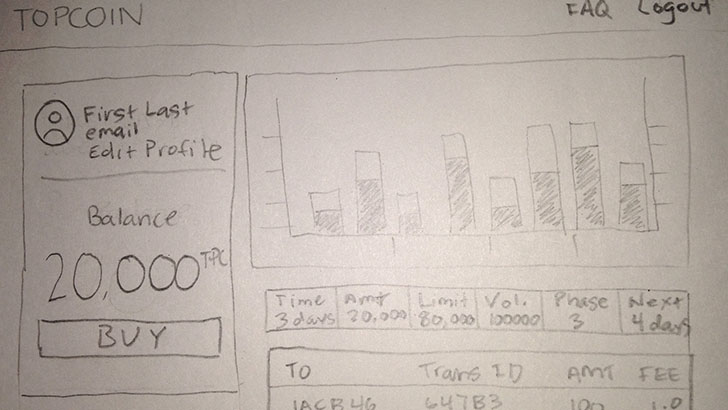 TOPCOIN
FAQ Logout
First Last
email
Edit Profile
Balance
20,000 TPC
BUY
Time Amt Limit Vol. Phase Next
3 days 20,000 80,000 100000 3 4 days
TO Trans ID AMT FEE
1ACB46 647B3 100 1.0